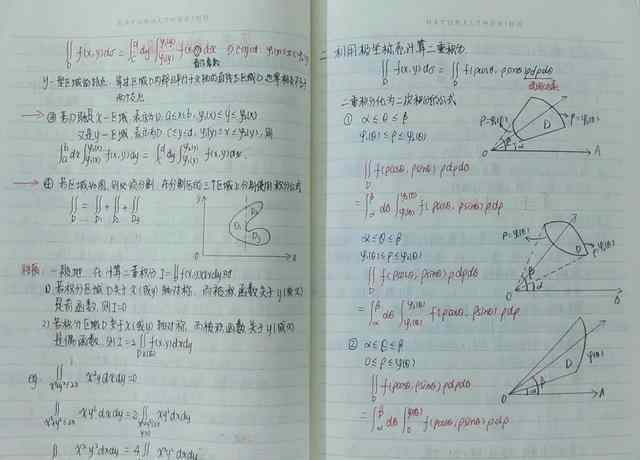 ∬_D f(x,y)dσ = ∫_c^d dy ∫_{φ₁(y)}^{φ₂(y)} f(x,y)dx
y-型区域的特点:
③ 若D既是x-区域, 表示为D: a≤x≤b, φ₁(x)≤y≤φ₂(x)
又是y-区域, 表示为D: c≤y≤d, φ₁(y)≤x≤φ₂(y), 则
∫_a^b dx ∫_{φ₁(x)}^{φ₂(x)} f(x,y)dy = ∫_c^d dy ∫_{φ₁(y)}^{φ₂(y)} f(x,y)dx.
④ 若区域如图, 则必须分割. 在分割后的三个区域上分别使用积分公式
∬_D = ∬_{D₁} + ∬_{D₂} + ∬_{D₃}
y
D₁
D₂
D₃
0
x
一般地, 在计算二重积分 I=∬f(x,y)dxdy时
1) 若积分区域D关于x(或y)轴对称, 而被积函数关于y(或x)
是奇函数, 则I=0
2) 若积分区域D关于x(或y)轴对称, 而被积函数关于y(或x)
是偶函数, 则I=2∬f(x,y)dxdy
eg. ∬ x²y dxdy=0
∬ xy²dxdy=2∬ xy²dxdy
∬ x²y²dxdy=4∬ x²y²dxdy
二. 利用极坐标计算二重积分
∬_D f(x,y)dσ = ∬_D f(ρcosθ, ρsinθ)ρdρdθ
二重积分化为二次积分的公式
① α≤θ≤β
φ₁(θ)≤ρ≤φ₂(θ)
∬_D f(ρcosθ, ρsinθ)ρdρdθ
=∫_α^β dθ ∫_{φ₁(θ)}^{φ₂(θ)} f(ρcosθ, ρsinθ)ρdρ
ρ=φ₁(θ)
D
ρ=φ₂(θ)
β
α
O
A
α≤θ≤β
φ₁(θ)≤ρ≤φ₂(θ)
∬_D f(ρcosθ, ρsinθ)ρdρdθ
=∫_α^β dθ ∫_{φ₁(θ)}^{φ₂(θ)} f(ρcosθ, ρsinθ)ρdρ
ρ=φ₂(θ)
D
ρ=φ₁(θ)
β
α
O
② α≤θ≤β
0≤ρ≤φ(θ)
∬_D f(ρcosθ, ρsinθ)ρdρdθ
=∫_α^β dθ ∫_0^{φ(θ)} f(ρcosθ, ρsinθ)ρdρ
D
φ(θ)
β
α
O
A